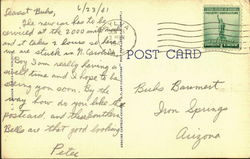 6/23/41
Dearest Bubs,
The new car has to be
serviced at the 2000 mile
and it takes 2 hours so here
I'm stuck in N. Carolina.
Boy I am really having a
swell time and I hope to be
seeing you soon. By the
way how do you like the
postcard, and these Southern
Belles are that good looking.
Peter
POST CARD
Bubs
Iron Springs
Arizona